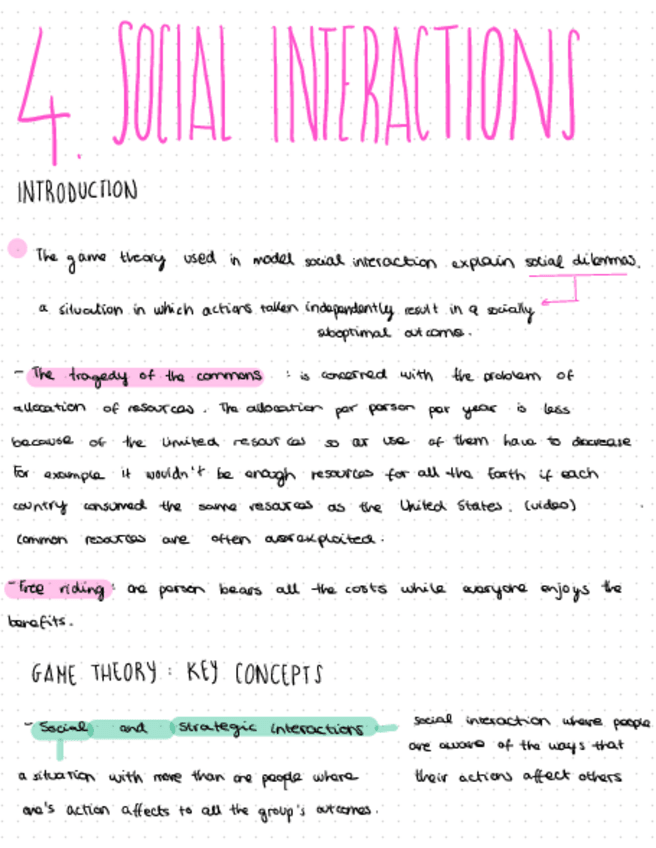 4. SOCIAL INTERACTIONS
INTRODUCTION
The game theory used in model social interaction explain social dilemmas.
a situation in which actions taken independently result in a socially
suboptimal outcome.
- The tragedy of the commons : is concerned with the problem of
allocation of resources. The allocation per person per year is less
because of the limited resources so ar use of them have to decrease
For example it wouldn't be enough resources for all the Earth if each
country consumed the same resources as the United States. (video)
Common resources are often overexploited.
- Free riding : one person bears all the costs while everyone enjoys the
benefits.
GAME THEORY : KEY CONCEPTS
- Social and strategic interactions
social interaction where people
are aware of the ways that
their actions affect others
a situation with more than one people where
one's action affects to all the group's outcomes.